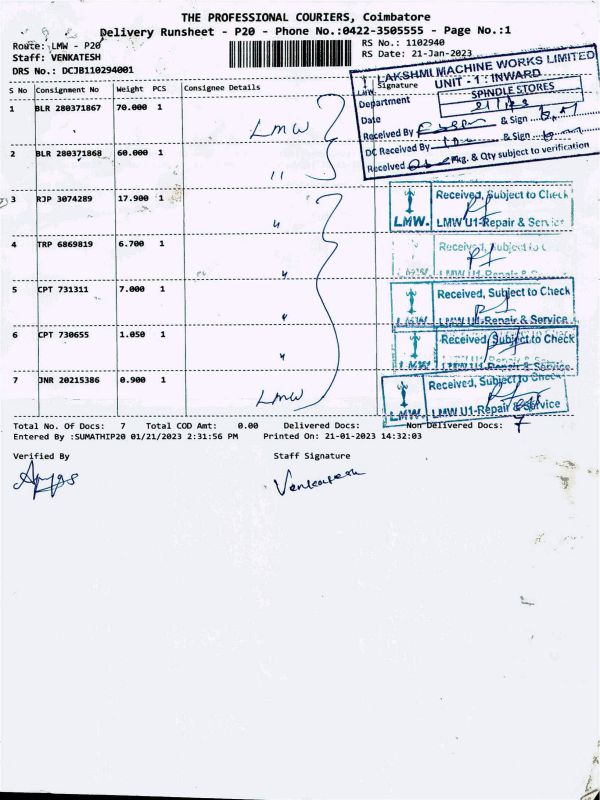 THE PROFESSIONAL COURIERS, Coimbatore
Delivery Runsheet - P20 - Phone No.:0422-3505555 - Page No.:1
Route: LMW - P20
RS No.: 1102940
Staff: VENKATESH
RS Date: 21-Jan-2023
DRS No.: DCJB110294001
LAKSHMI MACHINE WORKS LIMITED
UNIT - 1 : INWARD
SPINDLE STORES
Department
Date
Received By & Sign
DC Received By & Sign
Received Pkg. & Qty subject to verification
S No Consignment No Weight PCS Consignee Details Signature
1 BLR 280371867 70.000 1 LMW
2 BLR 280371868 60.000 1 11
3 RJP 3074289 17.900 1 "
Received, Subject to Check
LMW. LMW U1-Repair & Service
4 TRP 6869819 6.700 1 "
Received, Subject to
LMW U1-Repair & S
5 CPT 731311 7.000 1 "
Received, Subject to Check
LMW LMW U1-Repair & Service
6 CPT 730655 1.050 1 "
Received, Subject to Check
LMW LMW U1-Repair & Service
7 JNR 20215386 0.900 1 LMW
Received, Subject to Check
LMW. LMW U1-Repair & Service
Total No. Of Docs: 7 Total COD Amt: 0.00 Delivered Docs: Non Delivered Docs: 7
Entered By :SUMATHIP20 01/21/2023 2:31:56 PM Printed On: 21-01-2023 14:32:03
Verified By Staff Signature
Venkatesh